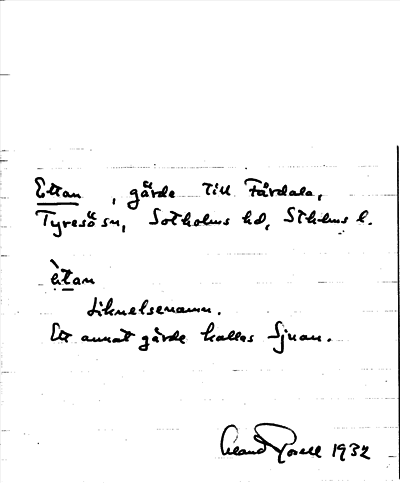 Ettan, gärde till Fårdala,
Tyresö sn, Sotholms hd, Sthlms l.
ètan
Liknelsenamn.
Ett annat gärde kallas Sjuan.
1932